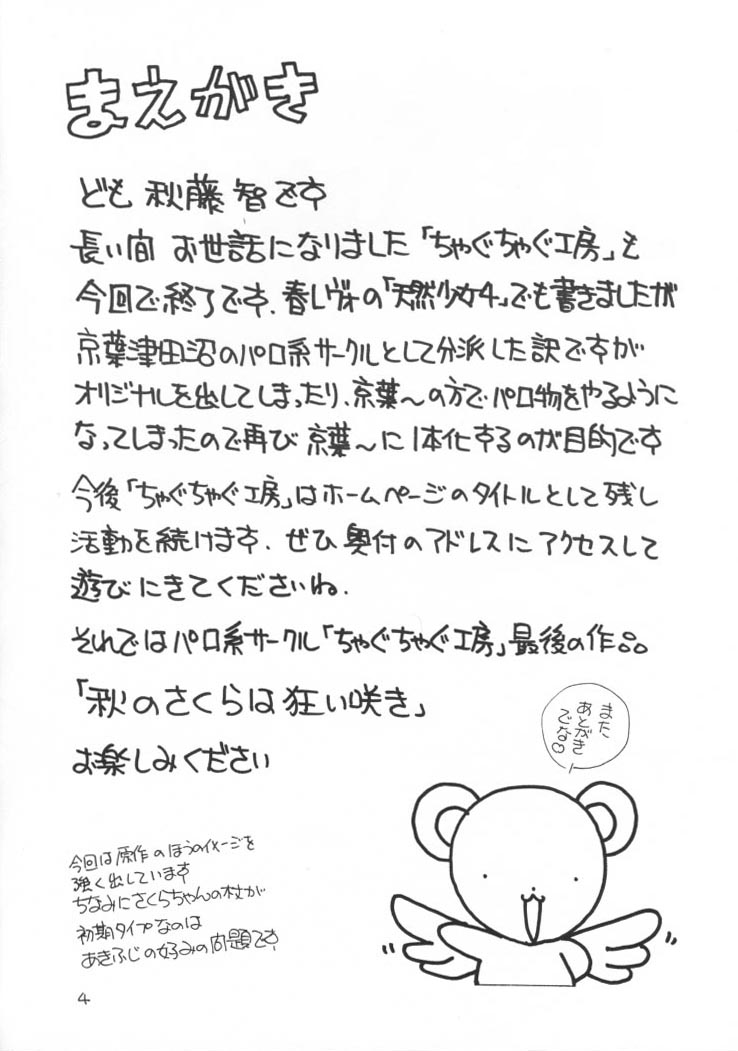 まえがき
ども 秋藤 智です
長い間 お世話になりました「ちゃぐちゃぐ工房」も
今回で終了です．春レヴォの「天然少女4」でも書きましたが
京葉津田沼のパロ系サークルとして分派した訳ですが
オリジナルを出してしまったり、京葉〜の方でパロ物をやるように
なってしまったので再び 京葉〜に1本化するのが目的です
今後「ちゃぐちゃぐ工房」はホームページのタイトルとして残し
活動を続けます．ぜひ 奥付のアドレスにアクセスして
遊びにきてくださいね．
それではパロ系サークル「ちゃぐちゃぐ工房」最後の作品
「秋のさくらは狂い咲き」
お楽しみください
また
あとがき
でな♡
今回は原作のほうのイメージを
強く出しています
ちなみにさくらちゃんの杖が
初期タイプなのは
あきふじの好みの問題です
4